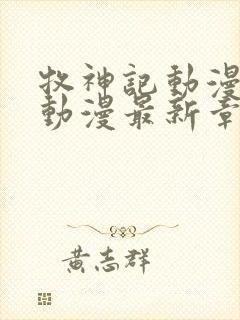 牧神記動漫
動漫最新章
黃志群